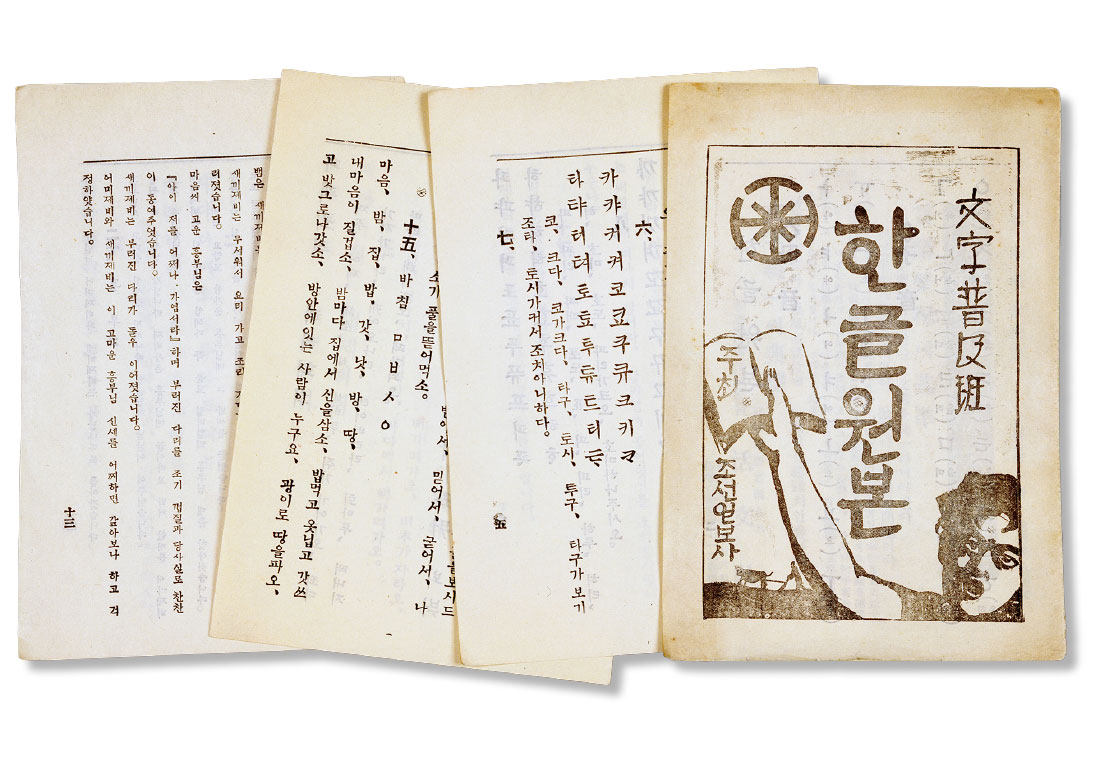 文字普及班
한글원본
(주최)
조선일보사
六、
카캬커켜코쿄쿠큐크키ㅋㆍ
타탸터텨토툐투튜트티ㅌㆍ
코、크다、코가크다、타구、토시、투구、타구가보기
조타、토시가커서 조치아니하다。
七、
五
을보시드
받어서、믿어서、굳어서、나
소가 풀을뜯어먹소。
十五、바침 ㅁㅂㅅㅇ
마음、밤、집、밥、갓、낫、방、땅、
내마음이 질겁소、밤마다 집에서 신을삼소、밥먹고 옷닙고 갓쓰
고 밧그로나갓소、방안에잇는 사람이 누구요、괭이로 땅을파오、
뱀은 새끼제비를
새끼제비는 무서워서 요리 가고 조리 가다
러젓습니다。
마음씨 고운 흥부님은
『아이 저를 어쩌나、가엽서라』하며 부러진 다리를 조기 껍질과 당사실로 찬찬
이 동여주엇습니다。
새끼제비는 부러진 다리가 돌우 이어젓습니다。
어미제비와 새끼제비는 이 고마운 흥부님 신세를 어찌하면 갚아보나 하고 걱
정하얏습니다。
十三